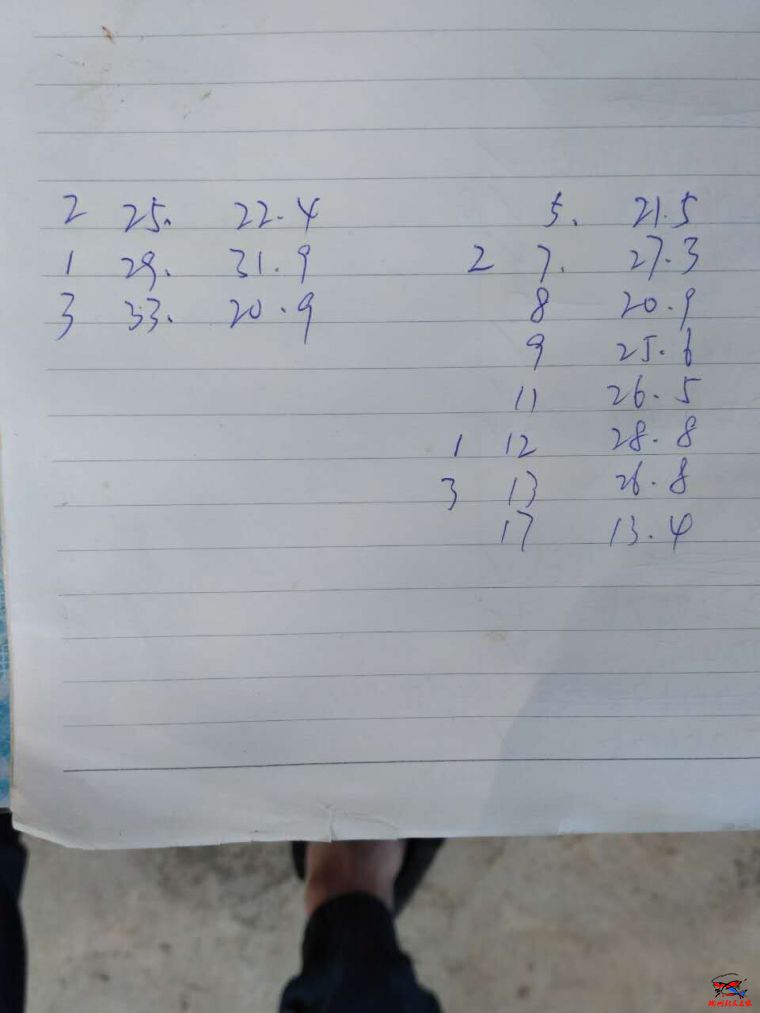 2 25. 22.4
1 29. 31.9
3 33. 20.9
5. 21.5
2 7. 27.3
8 20.9
9 25.6
11 26.5
1 12 28.8
3 13 26.8
17 13.4